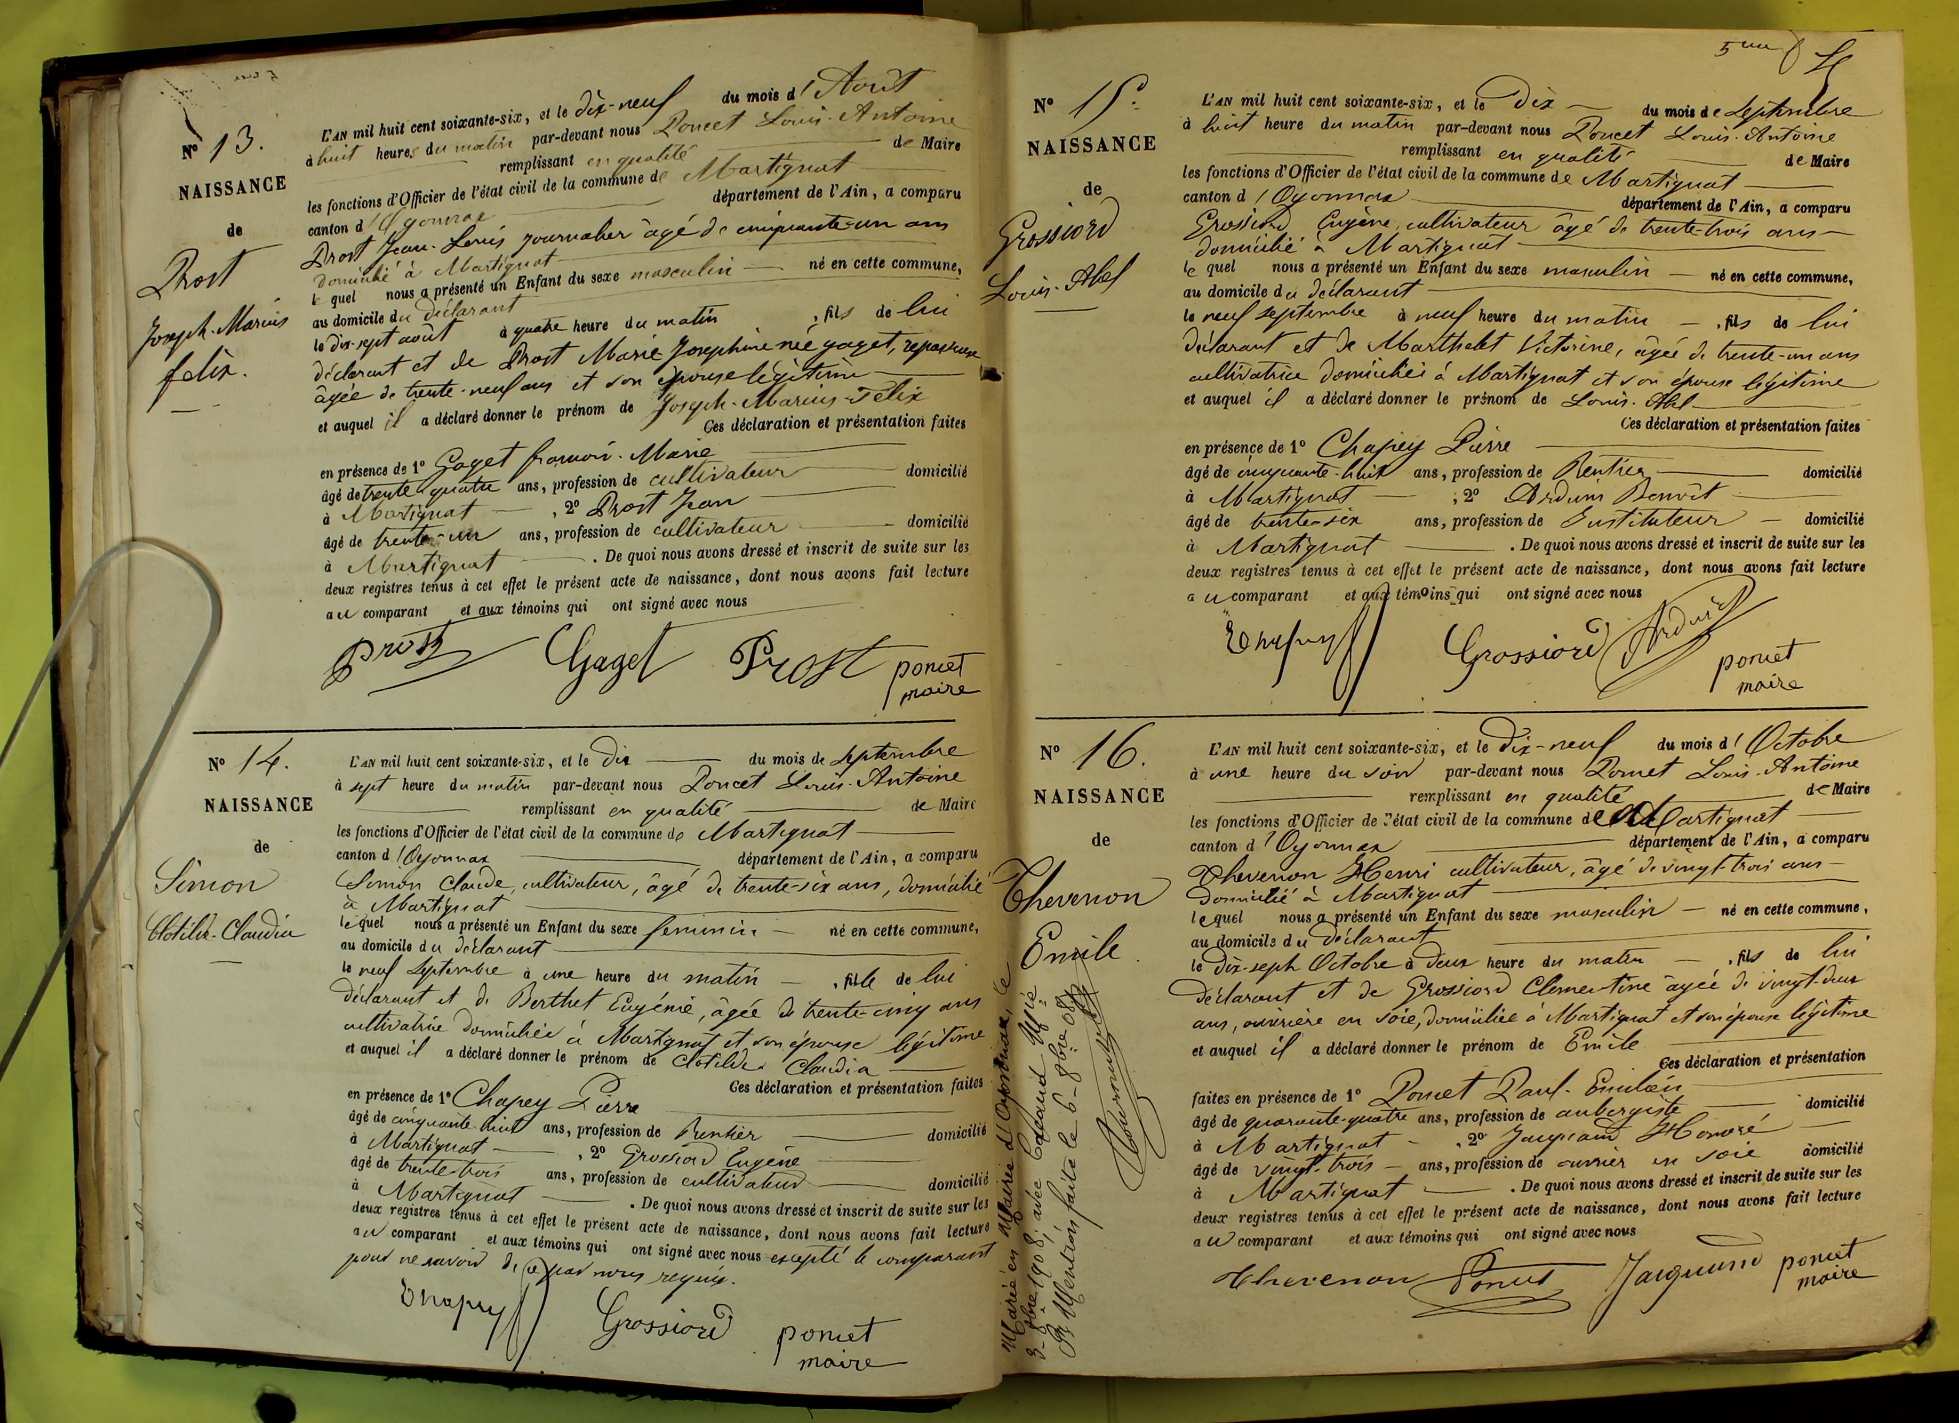 N° 13.
NAISSANCE
de
Prost
Joseph-Marius
félix.
L'AN mil huit cent soixante-six, et le dix-neuf du mois d'Août
à huit heures du matin par-devant nous Poncet Louis-Antoine
remplissant en qualité de Maire
les fonctions d'Officier de l'état civil de la commune de Martignat
canton d'Oyonnax département de l'Ain, a comparu
Prost Jean-Louis journalier âgé de cinquante-un ans
domicilié à Martignat
le quel nous a présenté un Enfant du sexe masculin né en cette commune,
au domicile du déclarant
le dix-sept août à quatre heure du matin, fils de lui
déclarant et de Prost Marie-Josephine née gaget, repasseuse
âgée de trente-neuf ans et son épouse légitime
et auquel il a déclaré donner le prénom de Joseph-Marius-Félix
Ces déclaration et présentation faites
en présence de 1° Gaget françois-Marie
âgé de trente quatre ans, profession de cultivateur domicilié
à Martignat, 2° Prost Jean
âgé de trente-un ans, profession de cultivateur domicilié
à Martignat. De quoi nous avons dressé et inscrit de suite sur les
deux registres tenus à cet effet le présent acte de naissance, dont nous avons fait lecture
au comparant et aux témoins qui ont signé avec nous
Prost Gaget Prost poncet
maire
N° 14.
NAISSANCE
de
Simon
Clotilde-Claudia
L'AN mil huit cent soixante-six, et le Dix du mois de Septembre
à sept heure du matin par-devant nous Poncet Louis-Antoine
remplissant en qualité de Maire
les fonctions d'Officier de l'état civil de la commune de Martignat
canton d'Oyonnax département de l'Ain, a comparu
Simon Claude, cultivateur, âgé de trente-six ans, domicilié
à Martignat
le quel nous a présenté un Enfant du sexe feminin né en cette commune,
au domicile du déclarant
le neuf Septembre à une heure du matin, fille de lui
déclarant et de Berthet Eugénie, âgée de trente-cinq ans
cultivatrice domiciliée à Martignat et son épouse légitime
et auquel il a déclaré donner le prénom de Clotilde Claudia
Ces déclaration et présentation faites
en présence de 1° Chapey Pierre
âgé de cinquante-huit ans, profession de Rentier domicilié
à Martignat, 2° Grossiord Eugène
âgé de trente-trois ans, profession de cultivateur domicilié
à Martignat. De quoi nous avons dressé et inscrit de suite sur les
deux registres tenus à cet effet le présent acte de naissance, dont nous avons fait lecture
au comparant et aux témoins qui ont signé avec nous excepté le comparant
pour ne savoir de ce par nous requis.
Chapey Grossiord poncet
maire
5me
N° 15.
NAISSANCE
de
Grossiord
Louis-Abel
L'AN mil huit cent soixante-six, et le Dix du mois de Septembre
à huit heure du matin par-devant nous Poncet Louis-Antoine
remplissant en qualité de Maire
les fonctions d'Officier de l'état civil de la commune de Martignat
canton d'Oyonnax département de l'Ain, a comparu
Grossiord Eugène, cultivateur âgé de trente-trois ans
domicilié à Martignat
le quel nous a présenté un Enfant du sexe masculin né en cette commune,
au domicile du déclarant
le neuf septembre à neuf heure du matin, fils de lui
déclarant et de Marthelet Victorine, âgée de trente-un ans
cultivatrice domiciliée à Martignat et son épouse légitime
et auquel il a déclaré donner le prénom de Louis-Abel
Ces déclaration et présentation faites
en présence de 1° Chapey Pierre
âgé de cinquante-huit ans, profession de Rentier domicilié
à Martignat, 2° Arduin Benoît
âgé de trente-six ans, profession de Instituteur domicilié
à Martignat. De quoi nous avons dressé et inscrit de suite sur les
deux registres tenus à cet effet le présent acte de naissance, dont nous avons fait lecture
au comparant et aux témoins qui ont signé avec nous
Chapey Grossiord Arduin poncet
maire
N° 16.
NAISSANCE
de
Thevenon
Emile
Marié en Mairie d'Oyonnax, le
3-8bre 1908, avec
Mention faite le 6-8bre 08
L'AN mil huit cent soixante-six, et le Dix-neuf du mois d'Octobre
à une heure du soir par-devant nous Poncet Louis-Antoine
remplissant en qualité de Maire
les fonctions d'Officier de l'état civil de la commune de Martignat
canton d'Oyonnax département de l'Ain, a comparu
Thevenon Henri cultivateur, âgé de vingt-trois ans
domicilié à Martignat
le quel nous a présenté un Enfant du sexe masculin né en cette commune,
au domicile du déclarant
le dix-sept Octobre à deux heure du matin, fils de lui
déclarant et de Grossiord Clementine âgée de vingt-deux
ans, ouvrière en soie, domiciliée à Martignat et son épouse légitime
et auquel il a déclaré donner le prénom de Emile
Ces déclaration et présentation
faites en présence de 1° Poncet Paul-Emilien
âgé de quarante-quatre ans, profession de aubergiste domicilié
à Martignat, 2° Jacquand Honoré
âgé de vingt-trois ans, profession de ouvrier en soie domicilié
à Martignat. De quoi nous avons dressé et inscrit de suite sur les
deux registres tenus à cet effet le présent acte de naissance, dont nous avons fait lecture
au comparant et aux témoins qui ont signé avec nous
Thevenon Poncet Jacquand poncet
maire